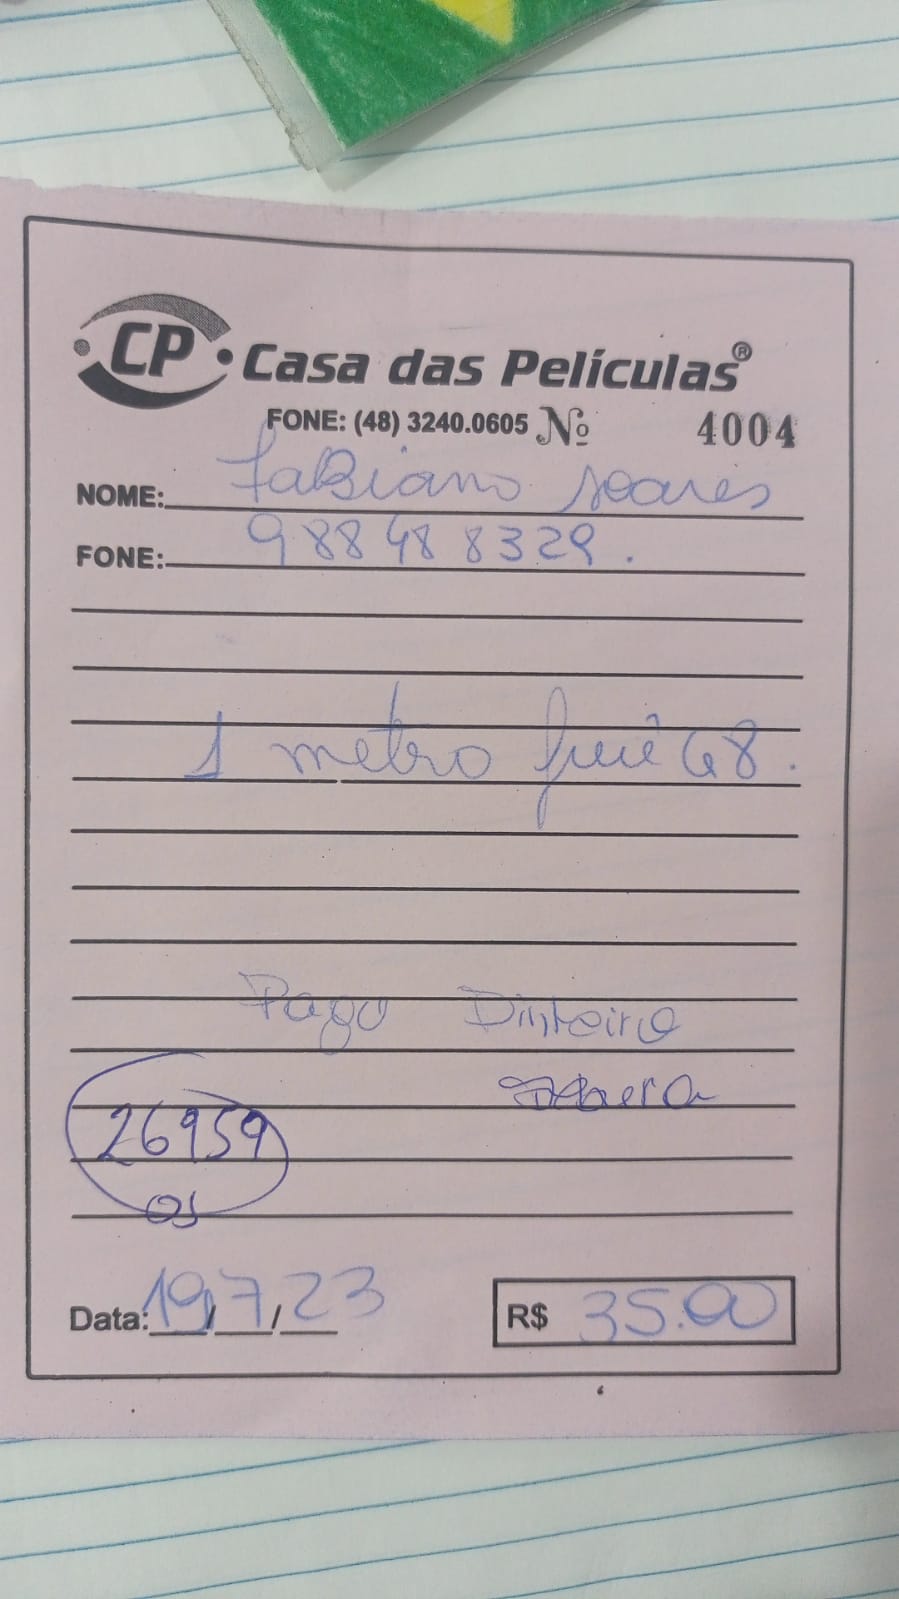 CP Casa das Películas®
FONE: (48) 3240.0605 Nº 4004
NOME: Fabiano Soares
FONE: 988488328.
1 metro G8.
Pago Dinheiro
26959
OS
Data: 19/7/23 R$ 35.00